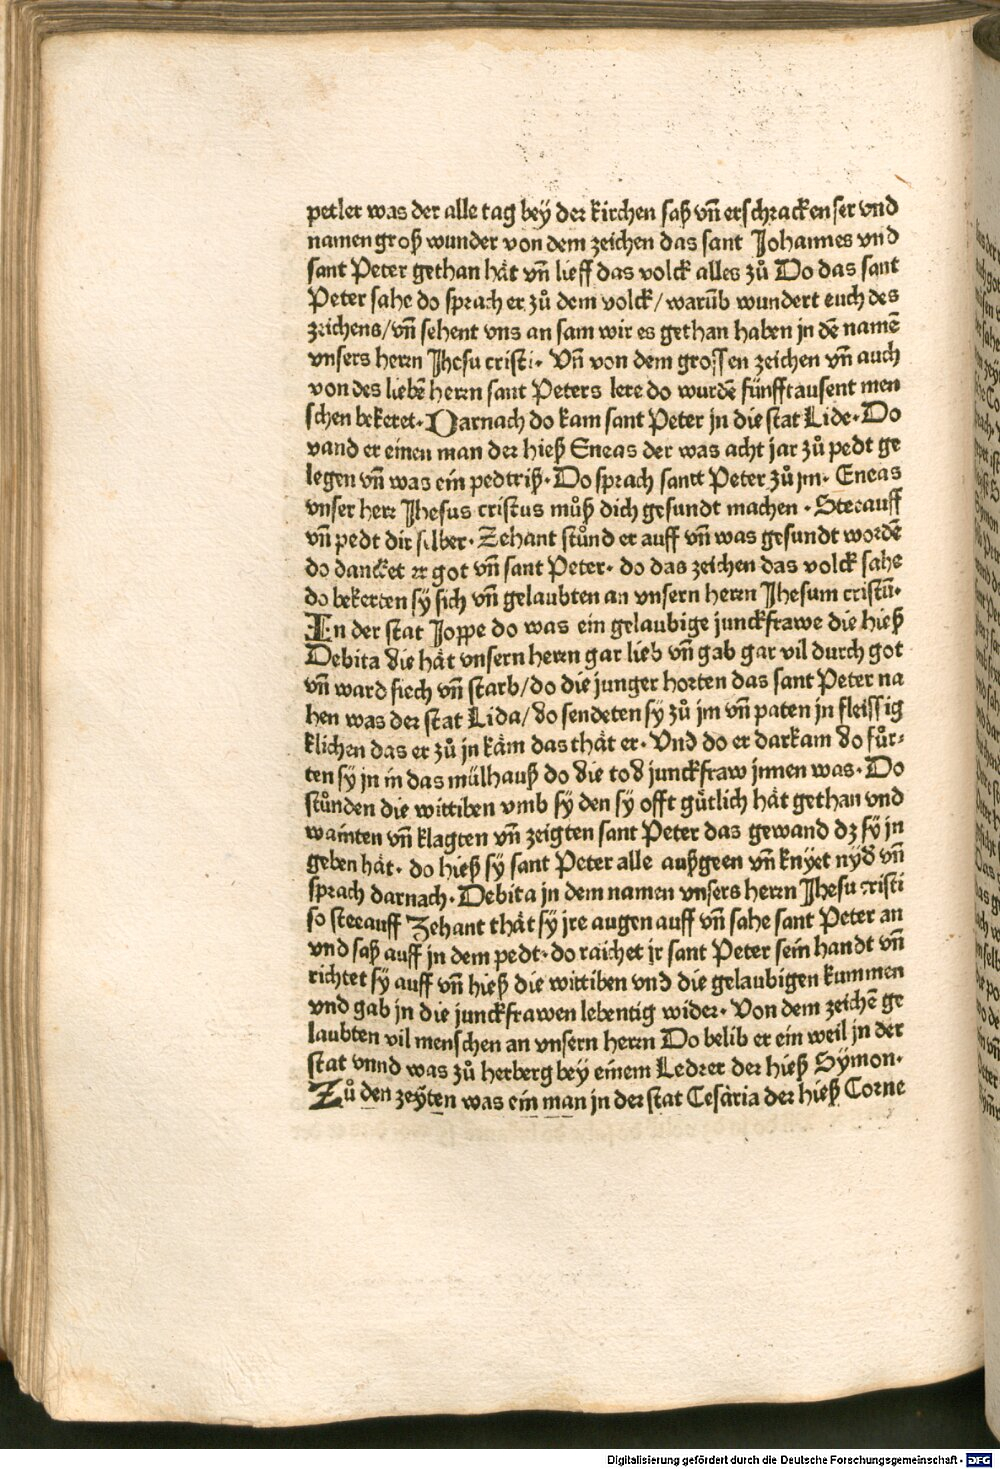 petler was der alle tag bey̋ der kirchen saß vn̄ erschracken ser vnd
namen groß wunder von dem zeichen das sant Johannes vnd
sant Peter gethan hät vn̄ lieff das volck alles zů Do das sant
Peter sahe do sprach er zů dem volck / warūb wundert euch des
zeichens / vn̄ sehent vns an sam wir es gethan haben in dē namē
vnsers herrn Jhesu cristi · Vn̄ von dem grossen zeichen vn̄ auch
von des liebē herrn sant Peters lere do wurdē fünfftausent men
schen bekeret · Darnach do kam sant Peter jn die stat Lide · Do
vand er einen man der hieß Eneas der was acht jar zů pedt ge
legen vn̄ was ein pedtriß · Do sprach santt Peter zů jm · Eneas
vnser herr Jhesus cristus můß dich gesundt machen · Steeauff
vn̄ pedt dir selber · Zehant stůnd er auff vn̄ was gesundt wordē
do dancket er got vn̄ sant Peter · do das zeichen das volck sahe
do bekerten sÿ sich vn̄ gelaubten an vnsern herrn Jhesum cristū ·
In der stat Joppe do was ein gelaubige junckfrawe die hieß
Debita die hät vnsern herrn gar lieb vn̄ gab gar vil durch got
vn̄ ward siech vn̄ starb / do die junger horten das sant Peter na
hen was der stat Lida / do sendeten sÿ zů jm vn̄ paten jn fleissig
klichen das er zů jn käm das thät er · Vnd do er darkam do fůr-
ten sÿ jn in das mülhauß do die tod junckfraw jnnen was · Do
stůnden die wittiben vmb sÿ den sÿ offt gütlich hät gethan vnd
wainten vn̄ klagten vn̄ zeigten sant Peter das gewand dz sÿ jn
geben hät · do hieß sÿ sant Peter alle außgeen vn̄ knÿet nÿd̄ vn̄
sprach darnach · Debita jn dem namen vnsers herrn Jhesu cristi
so steeauff Zehant thät sÿ jre augen auff vn̄ sahe sant Peter an
vnd saß auff jn dem pedt · do raichet jr sant Peter sein handt vn̄
richtet sÿ auff vn̄ hieß die wittiben vnd die gelaubigen kummen
vnd gab jn die junckfrawen lebentig wider · Von dem zeichē ge
laubten vil menschen an vnsern herrn Do belib er ein weil jn der
stat vnnd was zů herberg bey einem Ledrer der hieß Sÿmon ·
Zů den zeÿten was ein man jn der stat Cesaria der hieß Corne
Digitalisierung gefördert durch die Deutsche Forschungsgemeinschaft - DFG